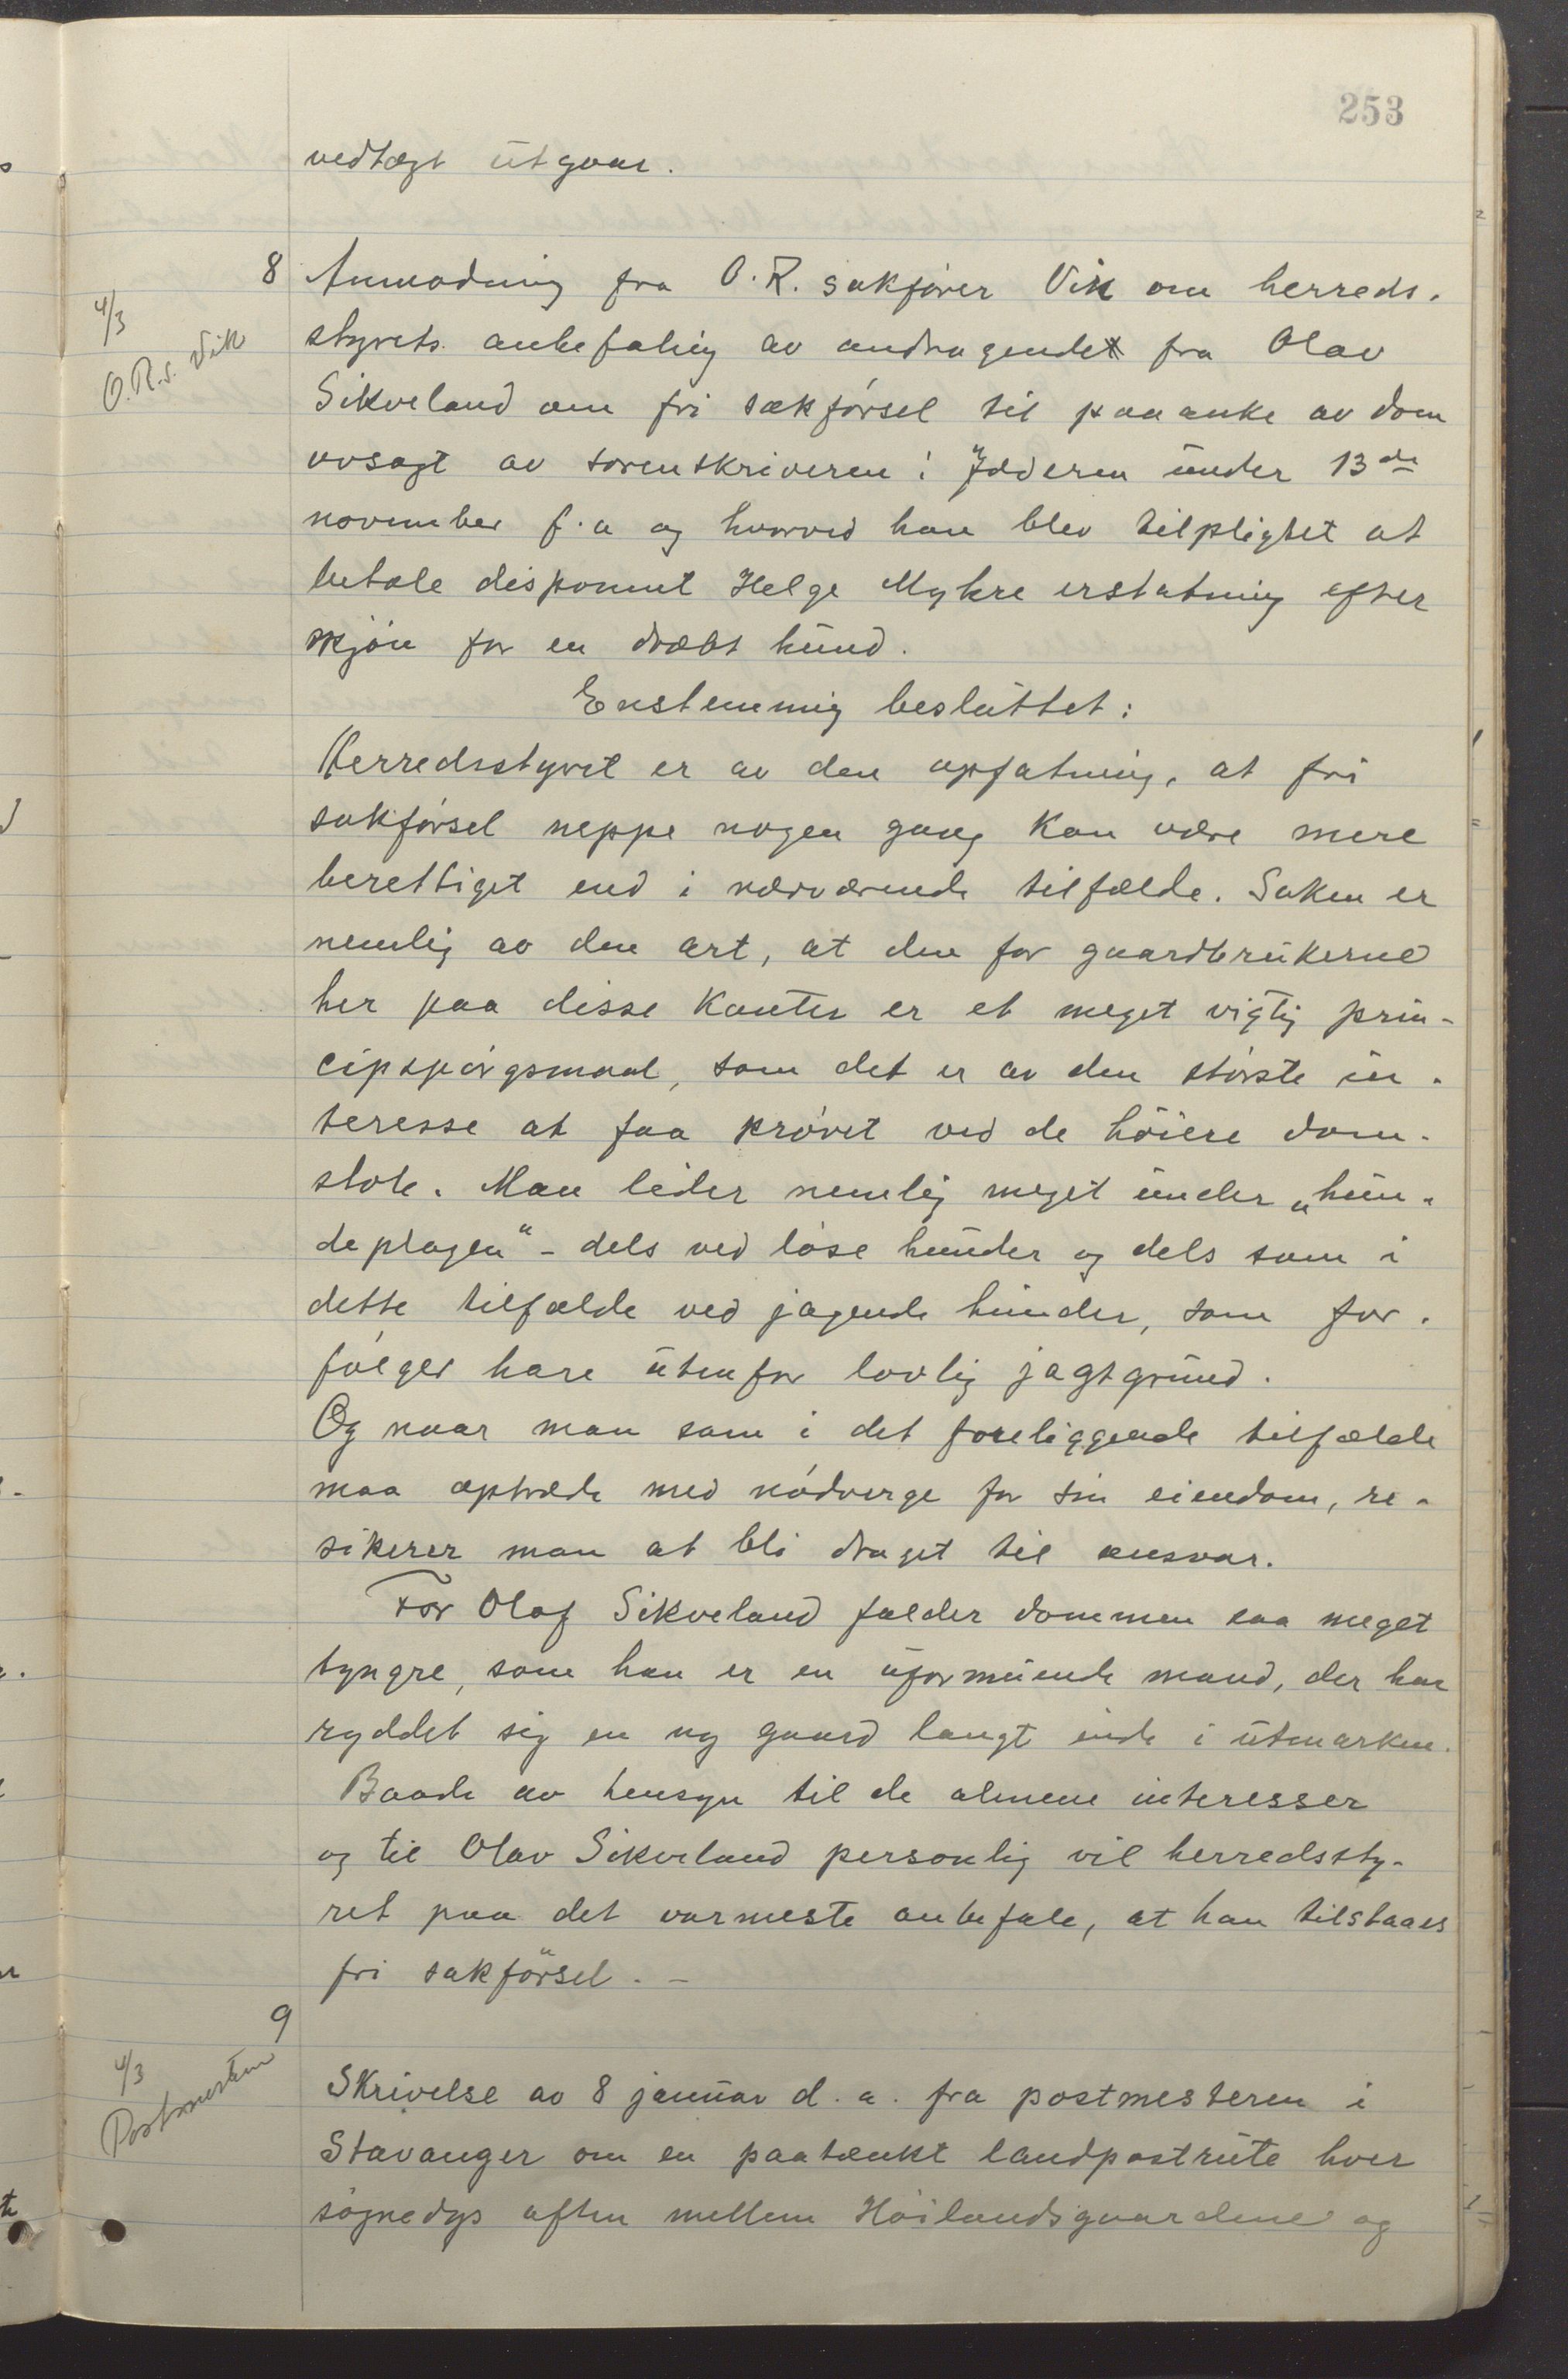 253
vedtægt utgaar.
8 Anmodning fra O.R. sakfører Vik om herreds-
4/3
O.R.s. Vik
styrets anbefaling av andragende fra Olav
Sikveland om fri sakførsel til paaanke av dom
avsagt av sorenskriveren i Jæderen under 13de
november f.a og hvorved han blev tilpligtet at
betale disponent Helge Mykre erstatning efter
skjøn for en dræbt hund.
Enstemmig besluttet:
Herredsstyret er av den opfatning, at fri
sakførsel neppe nogen gang kan være mere
berettiget end i nærværende tilfælde. Saken er
nemlig av den art, at den for gaardbrukerne
her paa disse kanter er et meget vigtig prin-
cipspørgsmaal, som det er av den største in-
teresse at faa prøvet ved de høiere dom-
stole. Man lider nemlig meget under „hun-
deplagen" - dels ved løse hunder og dels som i
dette tilfælde ved jagende hunder, som for-
følger hare utenfor lovlig jagtgrund.
Og naar man som i det foreliggende tilfælde
maa optræde med nødverge for sin eiendom, re-
sikerer man at bli draget til ansvar.
For Olaf Sikveland falder dommen saa meget
tyngre, som han er en uformuende mand, der har
ryddet sig en ny gaard langt inde i utmarken.
Baade av hensyn til de almene interesser
og til Olav Sikveland personlig vil herredssty-
ret paa det varmeste anbefale, at han tilstaaes
fri sakførsel. -
9
4/3
Postmesteren
Skrivelse av 8 januar d.a. fra postmesteren i
Stavanger om en paatænkt landpostrute hver
søgnedgs aften mellem Høilandsgaardene og